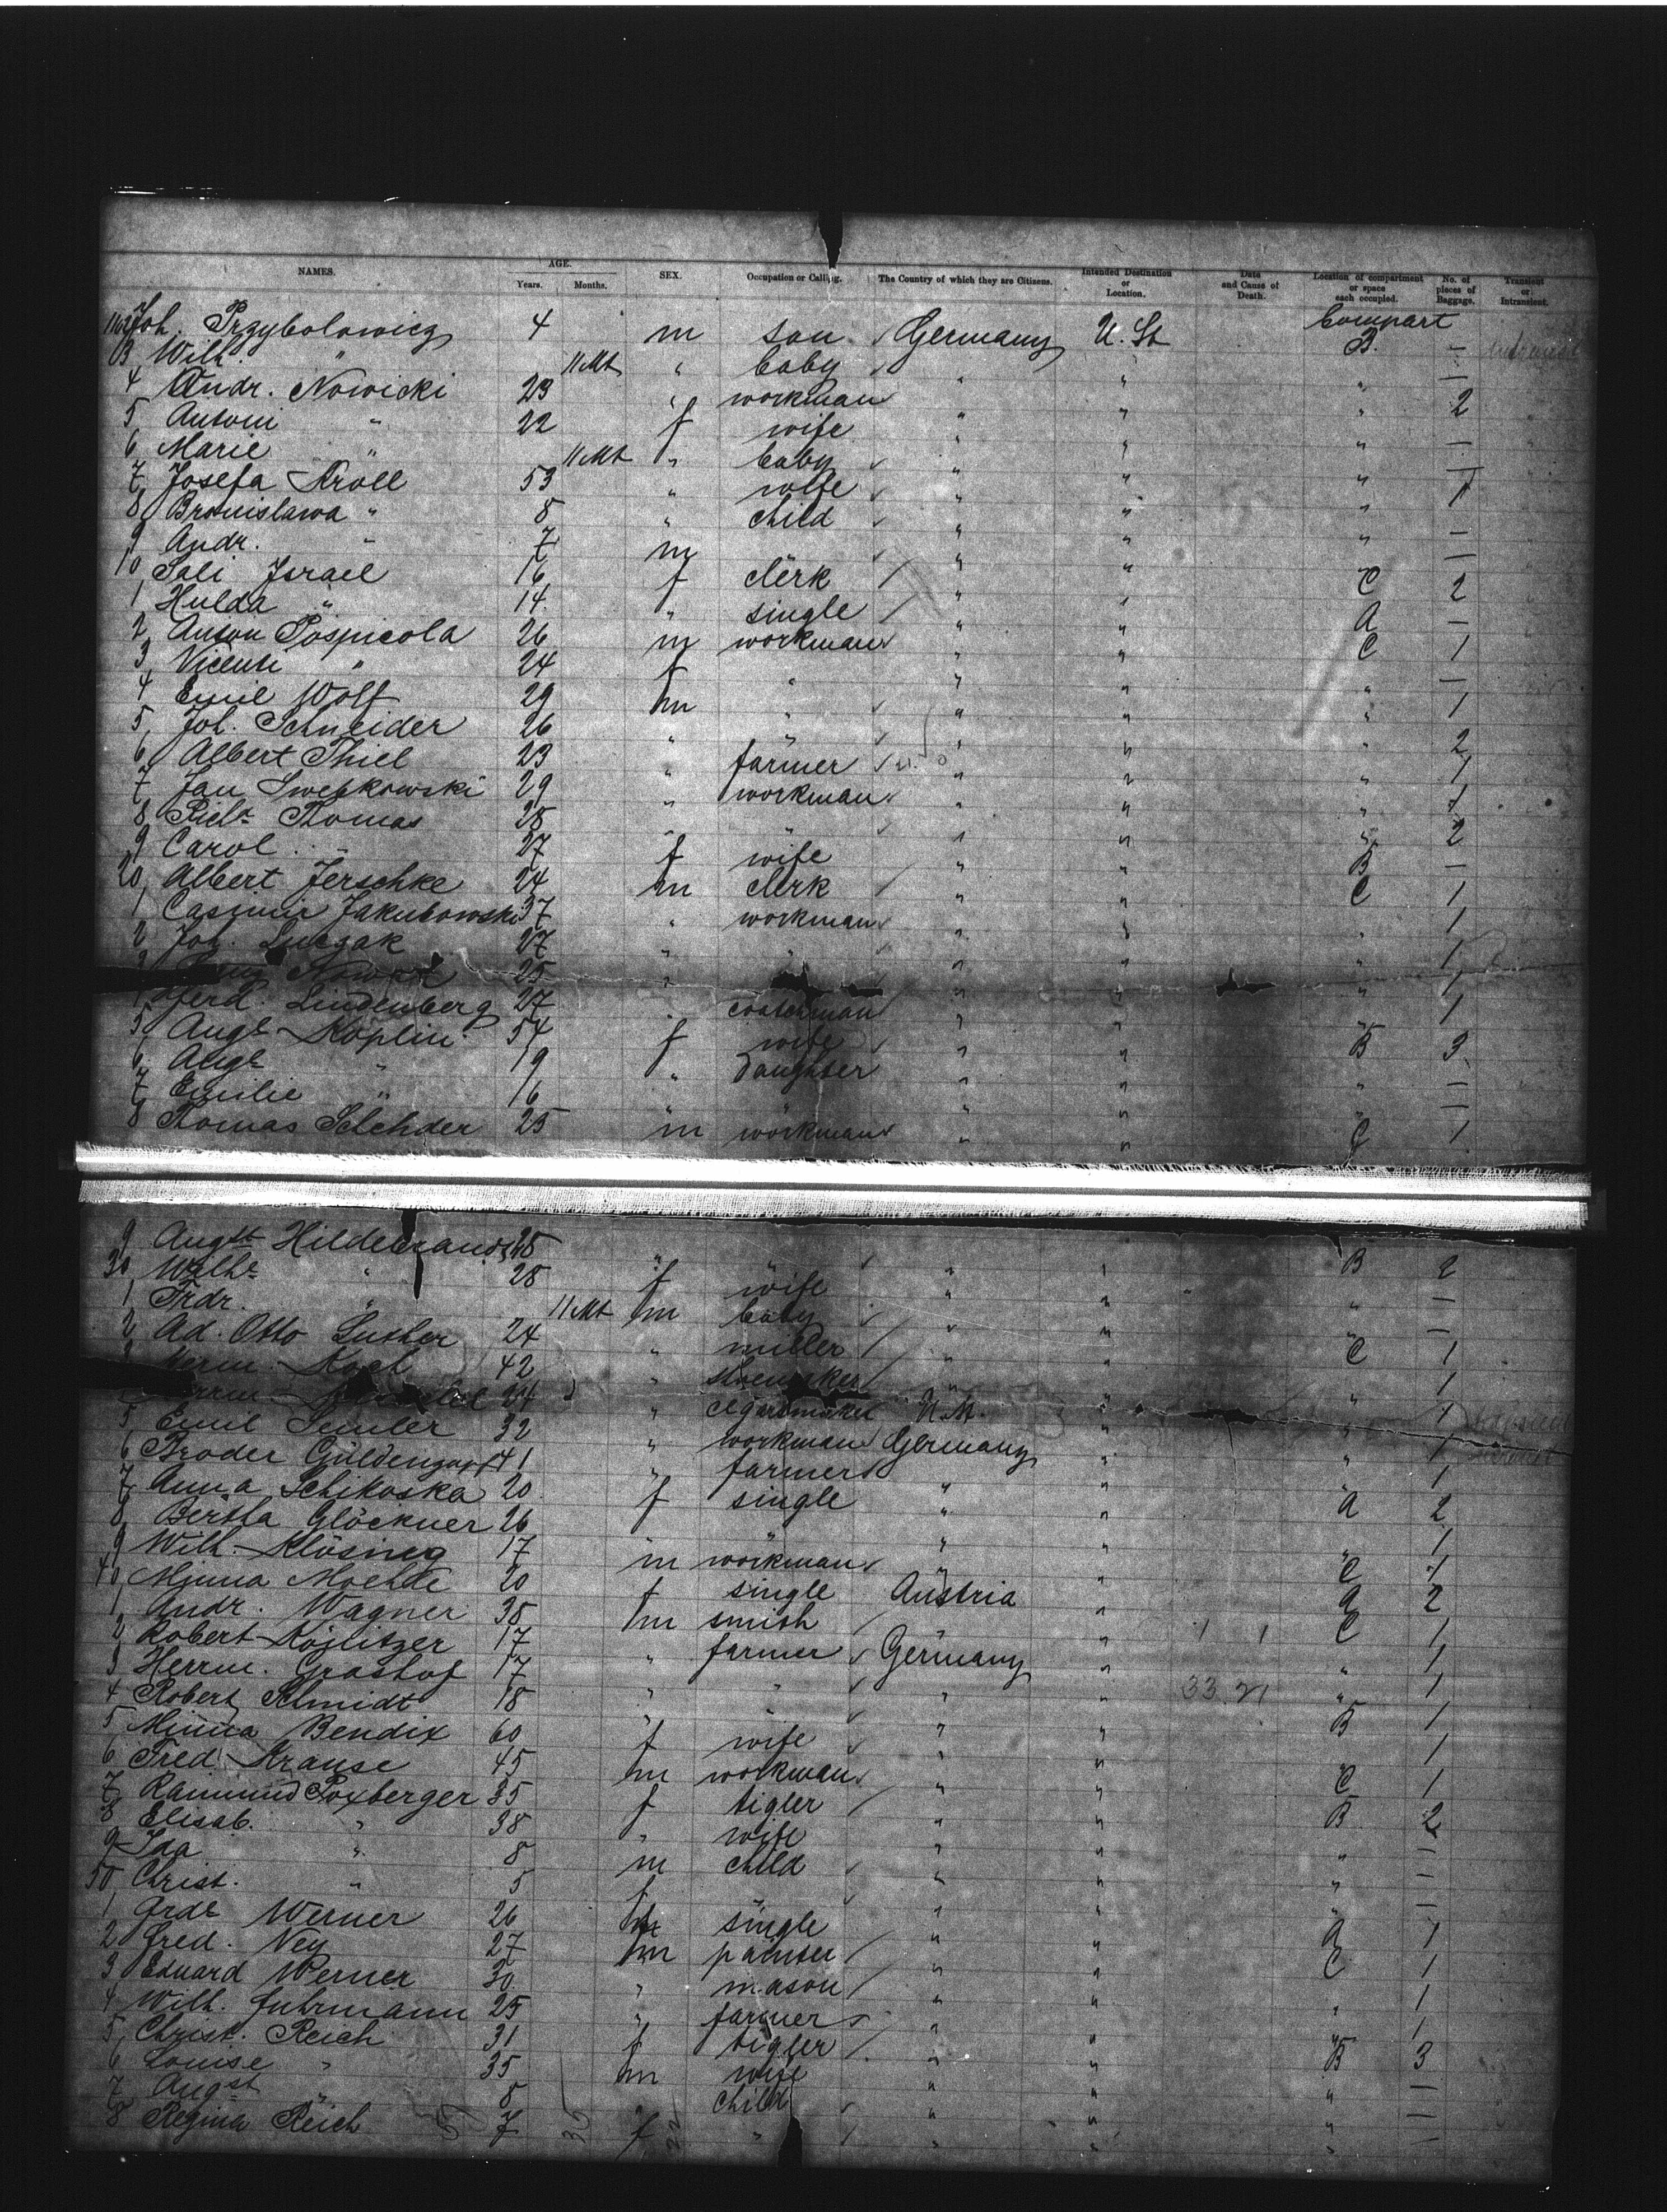 NAMES. AGE. Years. Months. SEX. Occupation or Calling. The Country of which they are Citizens. Intended Destination or Location. Date and Cause of Death. Location of compartment or space each occupied. No. of pieces of Baggage. Transient or Intransient.
Joh. Przybolowicz 4 m son Germany U. St Compart B. —
3 Wilh. " 11 Mt " baby " " " —
4 Andr. Nowicki 23 " workman " " " 2
5 Antoni " 22 f wife " " " —
6 Marie " 11 Mt " baby " " " —
7 Josefa Kroll 53 " wife " " " 1
8 Bronislawa " 8 " child " " " —
9 Andr. " 7 m " " " " —
10 Sali Israel 16 f clerk " " C 2
1 Hulda " 14 " single " " A —
2 Anton Pospicola 26 m workman " " C 1
3 Vicenti " 24 f " " " " —
4 Emil Wolf 29 m " " " " 1
5 Joh. Schneider 26 " " " " " 2
6 Albert Thiel 23 " farmer " " " 1
7 Jan 29 " workman " " " 1
8 Thomas 28 " " " " " 2
9 Carol. " 27 f wife " " B —
20 Albert Jerschke 24 m clerk " " C 1
1 Casimir Jakubowski 37 " workman " " " 1
2 Joh. 27 " " " " " 1
3 25 " " " " 1
4 Ferd. Lindenberg 27 coachman " " " 1
5 Augt Koplin 54 f wife " " B 3
6 Augt " 19 " daughter " " " —
7 Emilie " 16 " " " " " —
8 Thomas 25 m workman " " C 1
9 Augst Hildebrandt " " " " B 2
30 Wilhe " 28 f wife " " " —
1 Frdr. " 11 Mt m baby " " " —
2 Ad. Otto Luther 24 " miller " " C 1
3 Herm. Koch 42 " shoemaker " " " 1
" cigarmaker " " 1
5 Emil Semler 32 " workman Germany " " 1
6 Broder 41 " farmer " " " 1
7 Anna Schikoska 20 f single " " A 2
8 Bertha Glöckner 26 " " " " " 1
9 Wilh. Klösing 17 m workman " " C 1
40 Minna 20 f single Austria " A 2
1 Andr. Wagner 38 m smith " " C 1
2 Robert 17 " farmer Germany " " 1
3 Herrm. Grashof 17 " " " " " 1
4 Robert Schmidt 18 " " " " B 1
5 Minna Bendix 60 f wife " " " 1
6 Fred. Krause 45 m workman " " C 1
7 Raimund Poxberger 35 f tigler " " B 2
8 Elisab. " 38 " wife " " " —
9 Ida " 8 m child " " " —
50 Christ. " 5 f " " " " —
1 Frdr Werner 26 single " " A 1
2 Fred. Ney 27 m painter " " C 1
3 Eduard Werner 30 " mason " " " 1
4 Wilh. Fuhrmann 25 " farmer " " " 1
5 Christ. Reich 31 f tigler " " B 3
6 Louise " 35 m wife " " " —
7 Augst " 8 " child " " " —
8 Regina Reich 7 f " " " " —